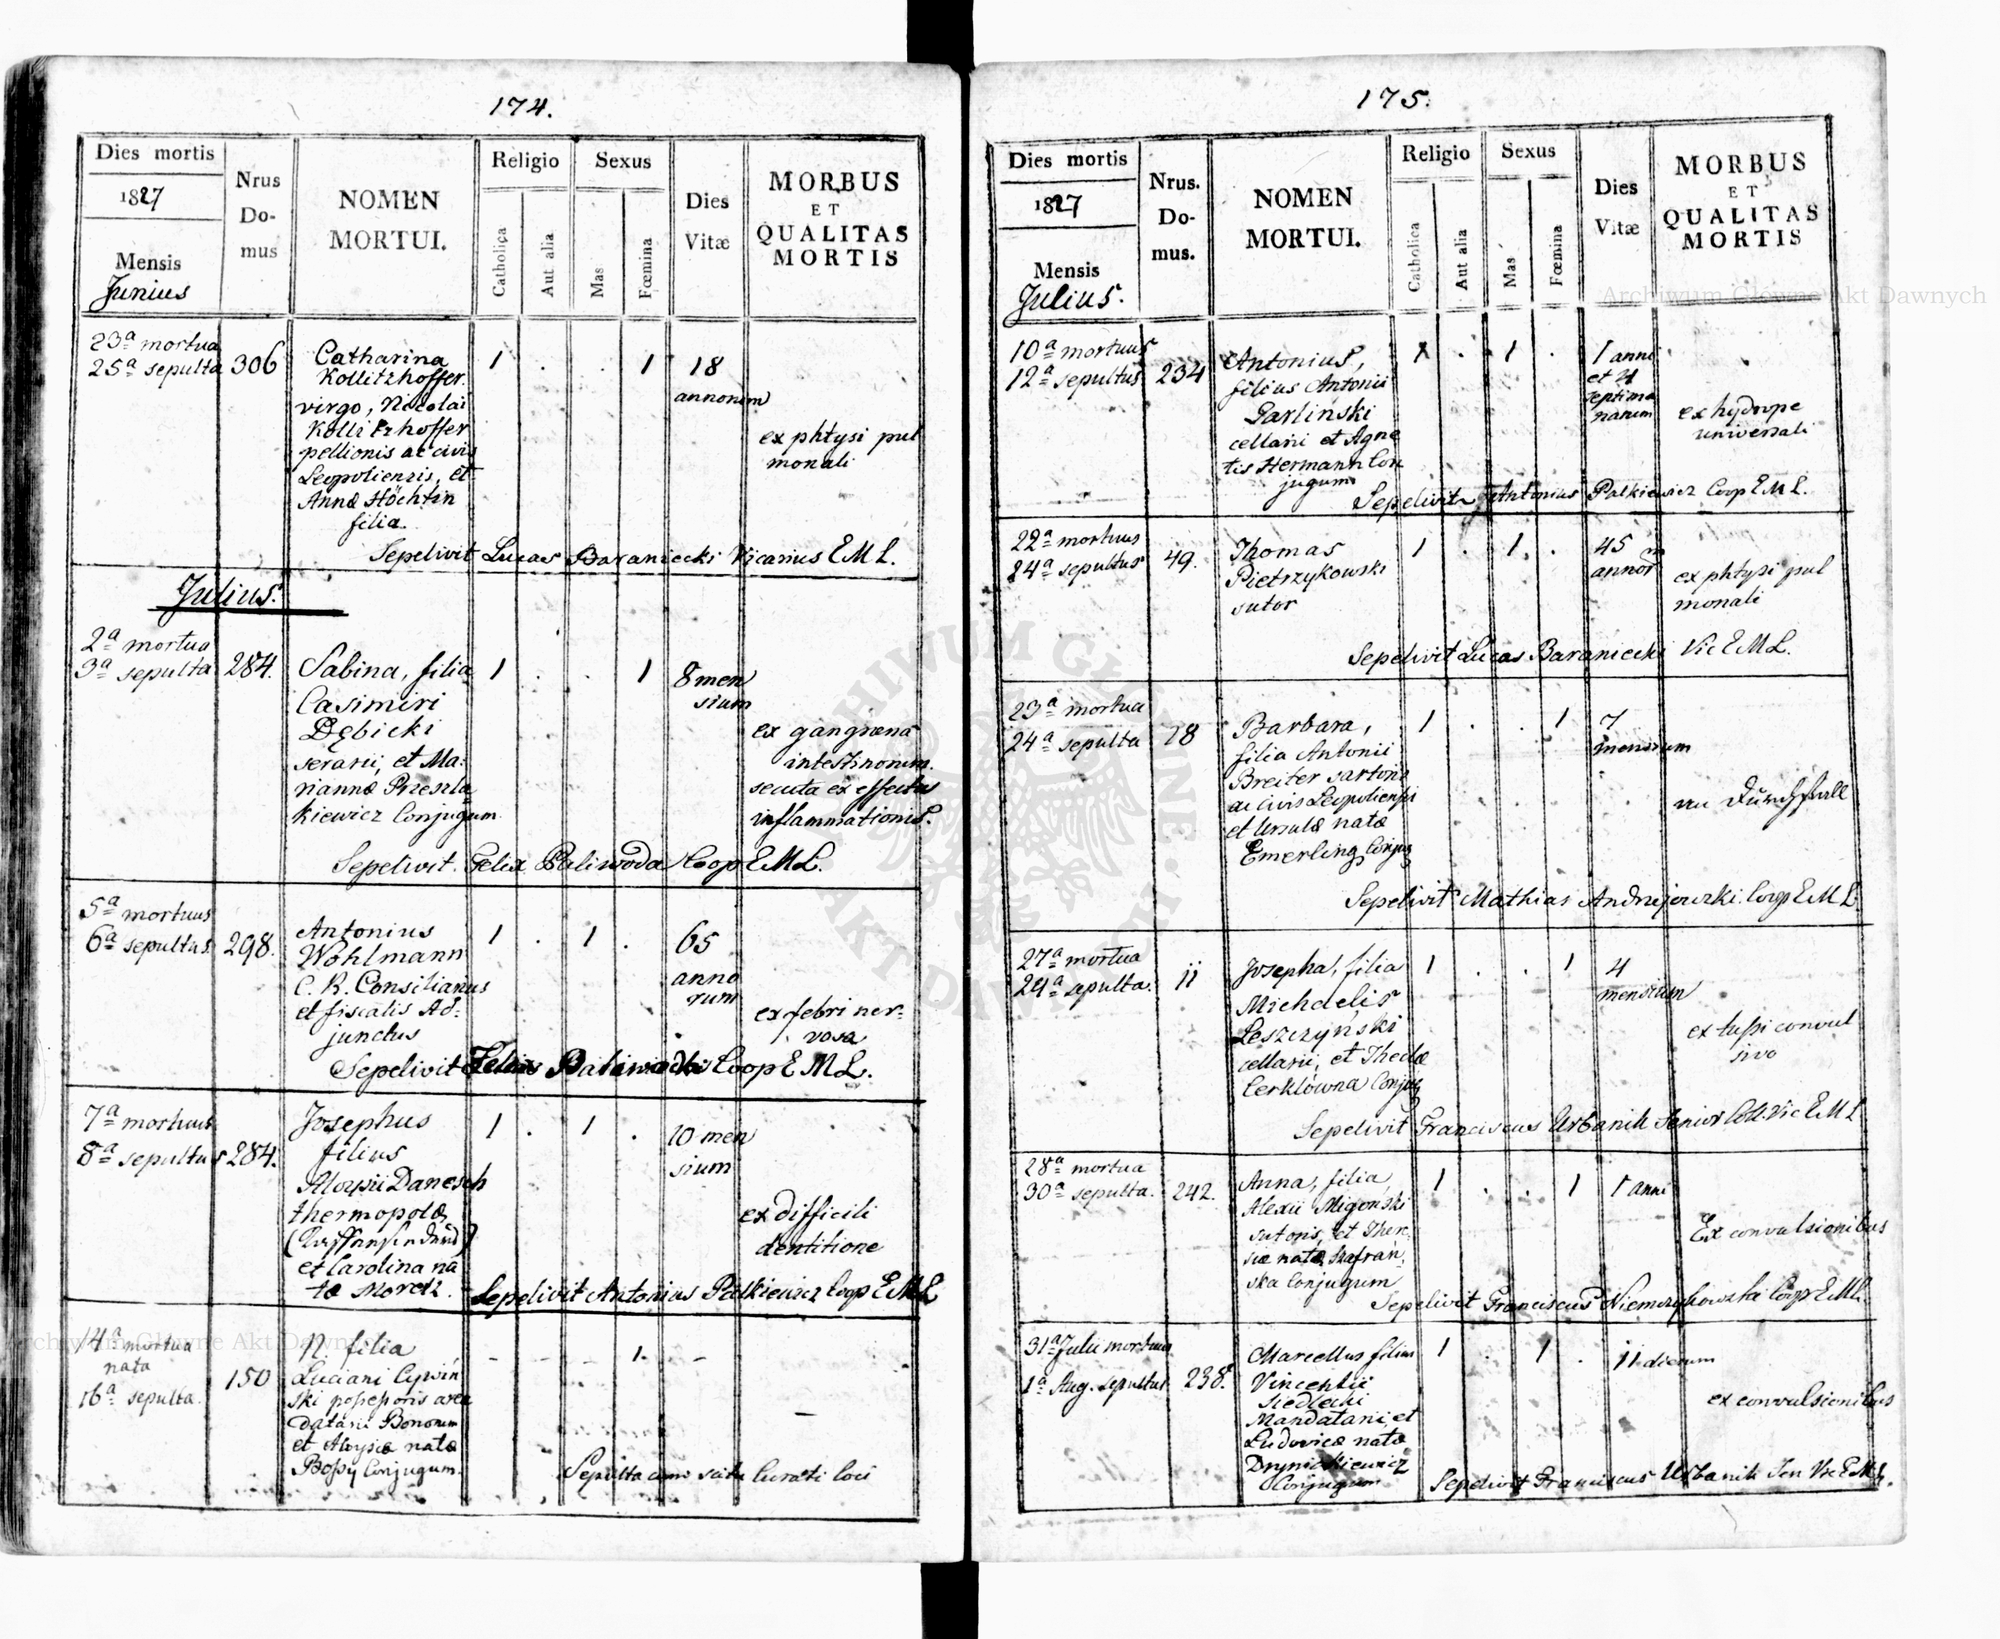 174.
Dies mortis
1827
Mensis
Junius
Nrus
Do-
mus
NOMEN
MORTUI.
Religio
Catholica
Aut alia
Sexus
Mas
Fœmina
Dies
Vitæ
MORBUS
ET
QUALITAS
MORTIS
23ª mortua
25ª sepulta
306
Catharina
Kollitzhoffer
virgo, Nicolai
Kollitzhoffer
pellionis ac civis
Leopoliensis, et
Annæ Höchtin
filia
1 . . 1
18
annorum
ex phtysi pul
monali
Sepelivit Lucas Baraniecki Vicarius E M L.
Julius.
2ª mortua
3ª sepulta
284.
Sabina, filia
Casimiri
Dębicki
serarii, et Ma:
riannæ Przezla
kiewicz Conjugum
1 . . 1
8 men
sium
ex gangrena
intestinorum
secuta ex effectu
inflammationis.
Sepelivit Felix Paliwoda Coop E M L.
5ª mortuus
6ª sepultus
298.
Antonius
Wohlmann
C. R. Consiliarius
et fiscalis Ad-
junctus
1 . 1 .
65
anno
rum
ex febri ner-
vosa
Sepelivit Coop E M L.
7ª mortuus
8ª sepultus
284.
Josephus
filius
Aloysii Danesch
thermopolæ
et Carolina na
ta Moretz.
1 . 1 .
10 men
sium
ex difficili
dentitione
Sepelivit Antonius Palkiewicz Coop E M L
14ª mortua
nata
16ª sepulta
150
N. filia
Luciani Cywiń
ski possessoris aren
datarii Bonorum
et Aloysiæ natæ
Bossy Conjugum.
- - 1. -
—
Sepulta cum scitu Curati loci
175.
Dies mortis
1827
Mensis
Julius.
Nrus.
Do-
mus.
NOMEN
MORTUI.
Religio
Catholica
Aut alia
Sexus
Mas
Fœmina
Dies
Vitæ
MORBUS
ET
QUALITAS
MORTIS
10ª mortuus
12ª sepultus
234
Antonius,
filius Antonii
Parliński
cellarii et Agne
tis Hermann Con
jugum
1 . 1 .
1 anni
et 4
septima
narum
ex hydrope
universali
Sepelivit Antonius Palkiewicz Coop E M L.
22ª mortuus
24ª sepultus
49.
Thomas
Pietrzykowski
sutor
1 . 1 .
45
annor
ex phtysi pul
monali
Sepelivit Lucas Baraniecki Vic E M L.
23ª mortua
24ª sepulta
78
Barbara,
filia Antonii
Breiter sartoris
ac civis Leopoliensis
et Ursulæ natæ
Emerling Conjug
1 . . 1
7
mensium
an Durchfall
Sepelivit Mathias Andrzejowski Coop E M L
27ª mortua
29ª sepulta.
11
Josepha, filia
Michaelis
Leszczyński
cellarii, et Theclæ
Cerklówna Conjug
1 . . 1
4
mensium
ex tussi convul
siva
Sepelivit Franciscus Urbanik Senior Vic E M L
28ª mortua
30ª sepulta.
242.
Anna, filia
Alexii Migoński
sutoris, et There
siæ natæ Szafrań
ska Conjugum
1 . . 1
1 anni
Ex convulsionibus
Sepelivit Franciscus Niemczykowski Coop E M L.
31ª Julii mortuus
1ª Aug. sepultus
238.
Marcellus filius
Vincentii
Siedlecki
Mandatarii, et
Ludovicæ natæ
Dryniakiewicz
Conjugum
1 . 1 .
11 dierum
ex convulsionibus
Sepelivit Franciscus Urbanik Sen Vic E M L.
Archiwum Główne Akt Dawnych
Archiwum Główne Akt Dawnych
ARCHIWUM GŁÓWNE AKT DAWNYCH